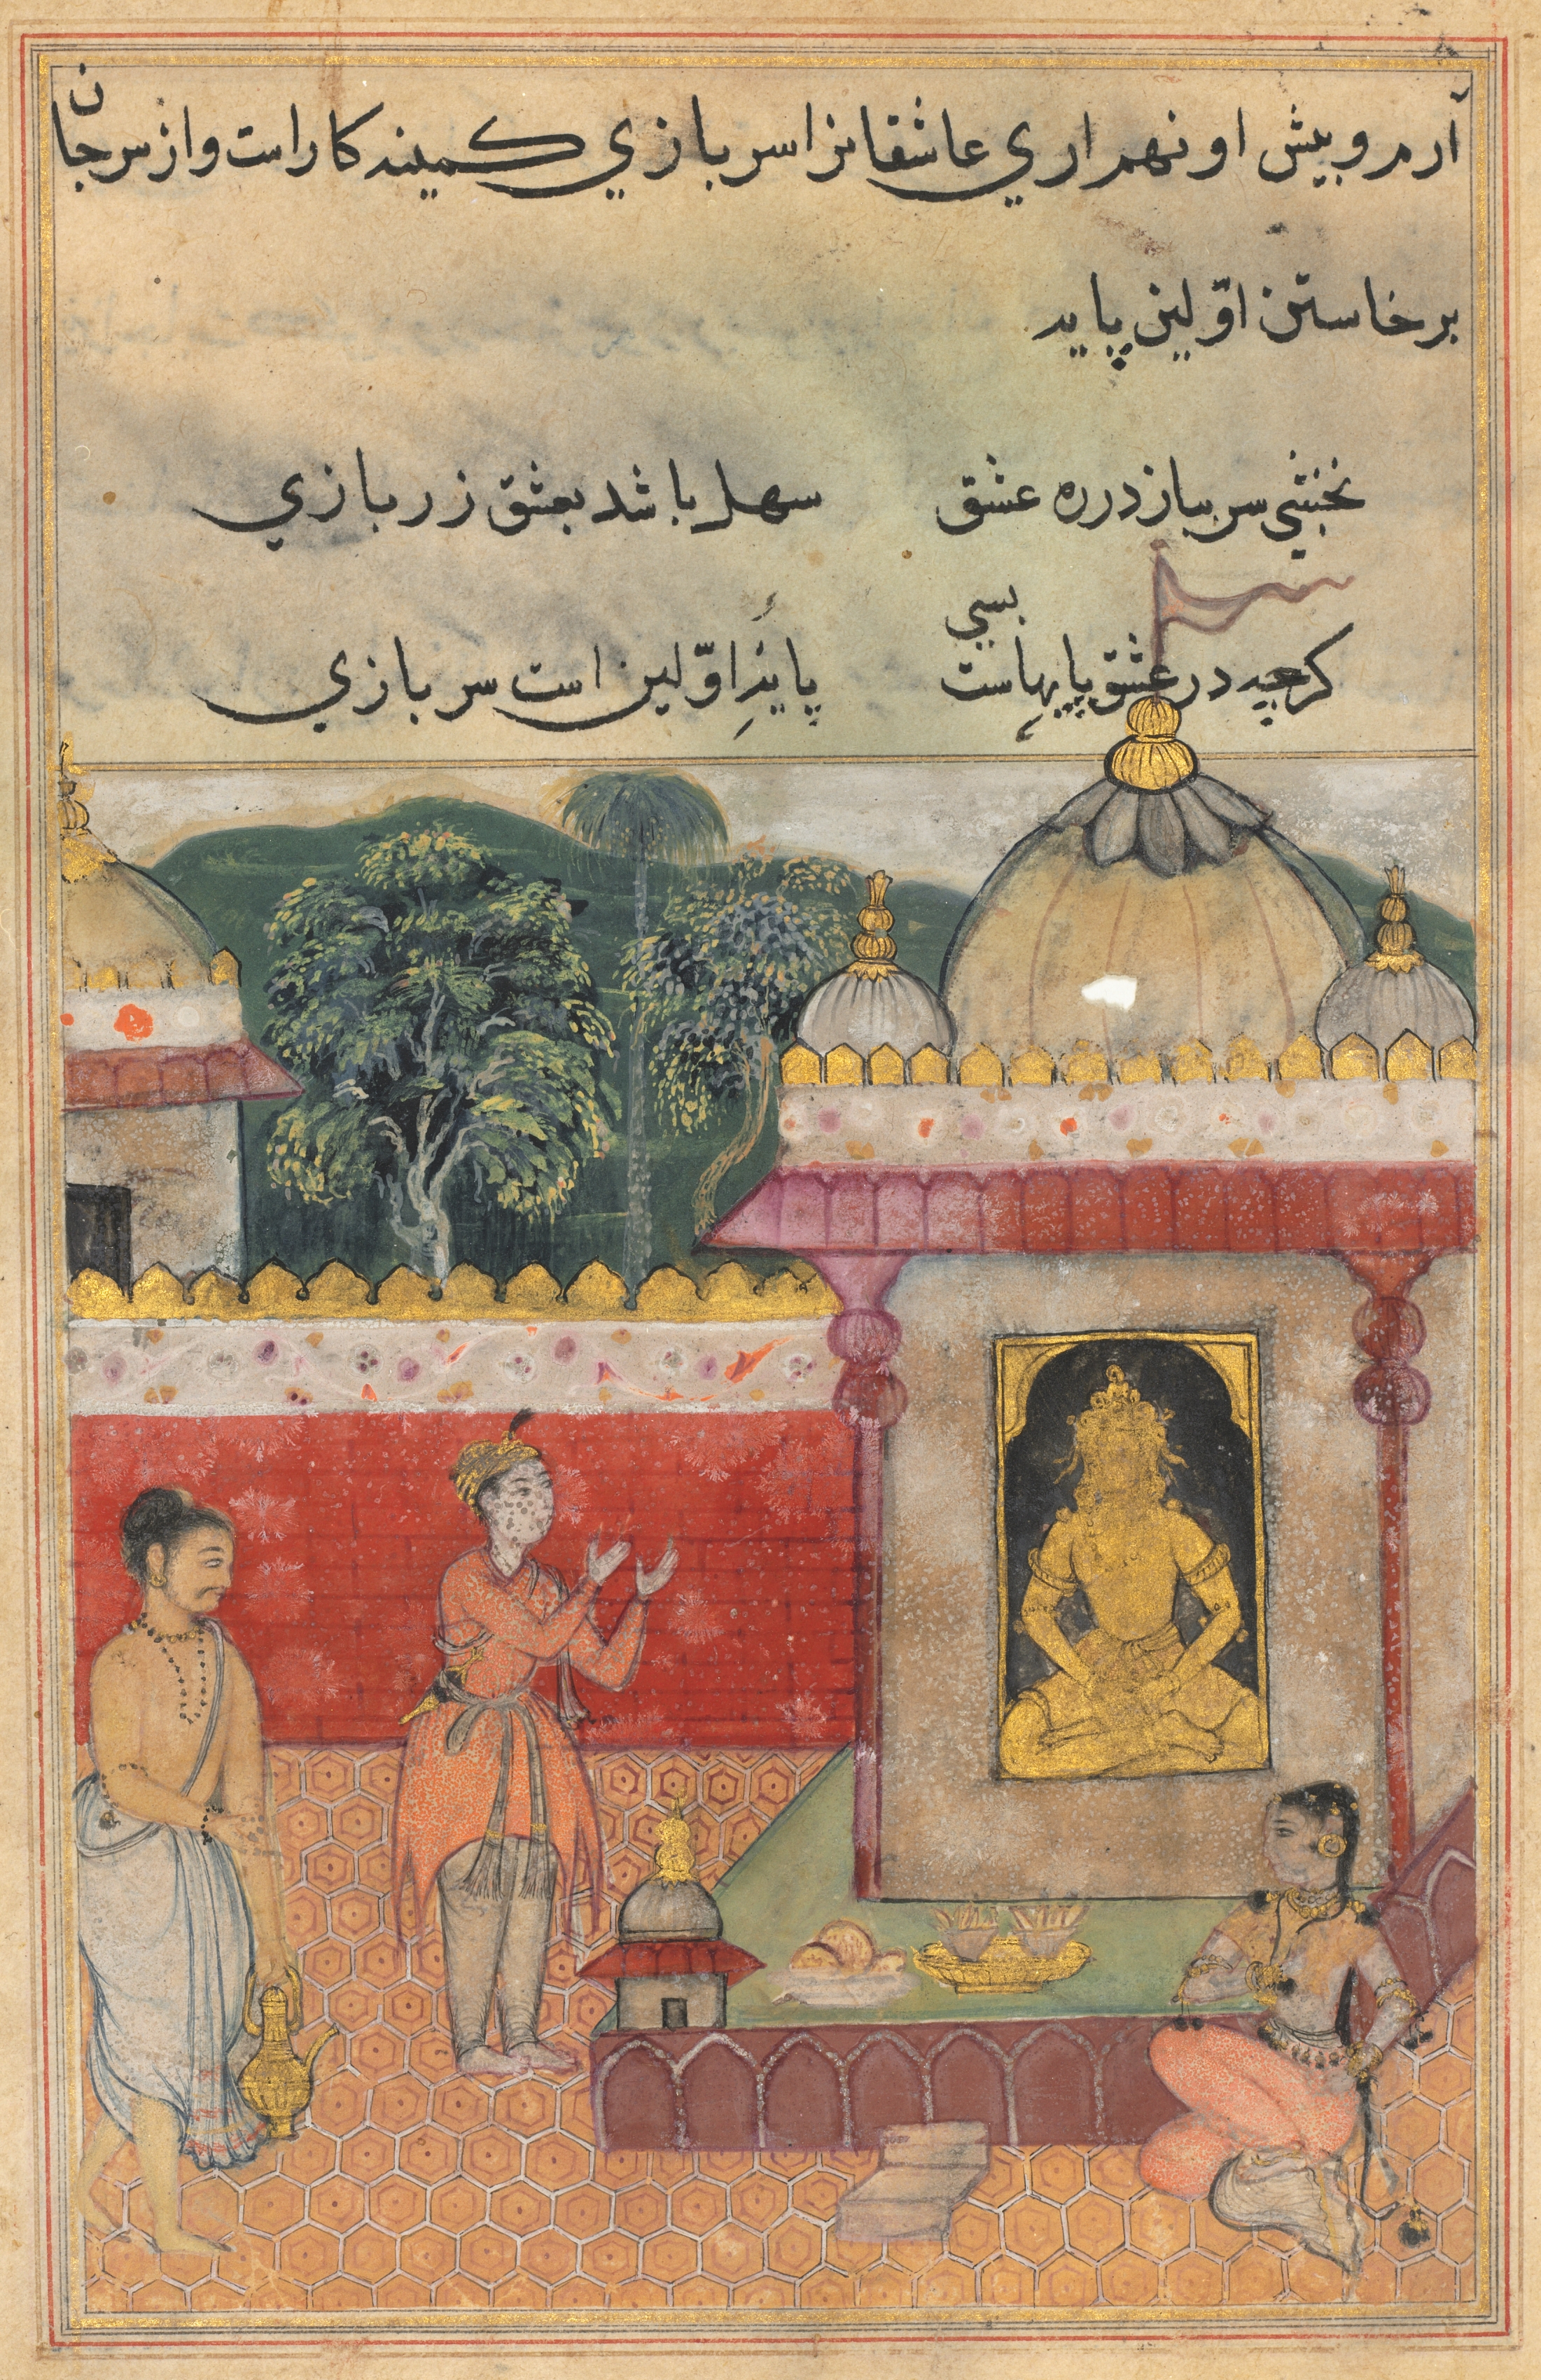 آرم و پیش او نهم اری عاشقانرا سربازی کمینه کار است و از سر جان
برخاستن اوّلین پایه
نخشبی سر بباز در ره عشق سهل باشد بعشق زر بازی
کرچه در عشق پایهاست بسی پایۀ اوّلین است سربازی